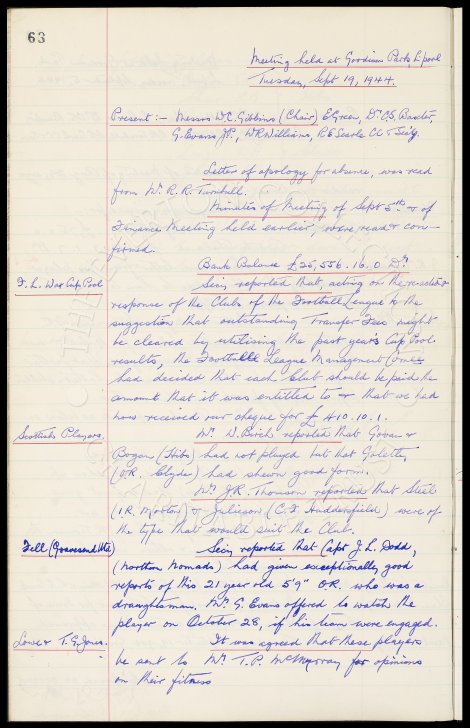 63
Meeting held at Goodison Park, L'pool
Tuesday, Sept 19, 1944.
Present :- Messrs W.C. Gibbins (Chair) E Green, Dr. C.S. Baxter,
G. Evans J.P., W.R Williams, R E Searle CC & Secy.
Letter of apology for absence, was read
from Mr. R. R. Turnbull.
Minutes of Meeting of Sept 5th & of
Finance Meeting held earlier, were read & con-
firmed.
Bank Balance £25,556. 16. 0 Dr.
F. L. War Cup Pool
Secy reported that, acting on the
response of the Clubs of the Football League to the
suggestion that outstanding Transfer Fees might
be cleared by utilising the past year's Cup Pool
results, the Football League Management
had decided that each Club should be paid the
amount that it was entitled to & that we had
now received our cheque for £410. 10. 1.
Scottish Players.
Mr. W. Birch reported that Govan &
Bogan (Hibs) had not played but that Galette,
(O.R. Clyde) had shewn good form.
Mr J.R. Thomson reported that Steel
(I R. Morton) & Julieson (C.F Huddersfield) were of
the type that would suit the Club.
Fell (Gravesend Utd)
Secy reported that Capt J. L. Dodd,
(Northern Nomads) had given exceptionally good
reports of this 21 year old 5'9" O.R. who was a
draughtsman. Mr. G. Evans offered to watch the
player on October 28, if his team were engaged.
Lowe & T.G. Jones.
It was agreed that these players
be sent to Mr. T. P. McMurray for opinions
on their fitness